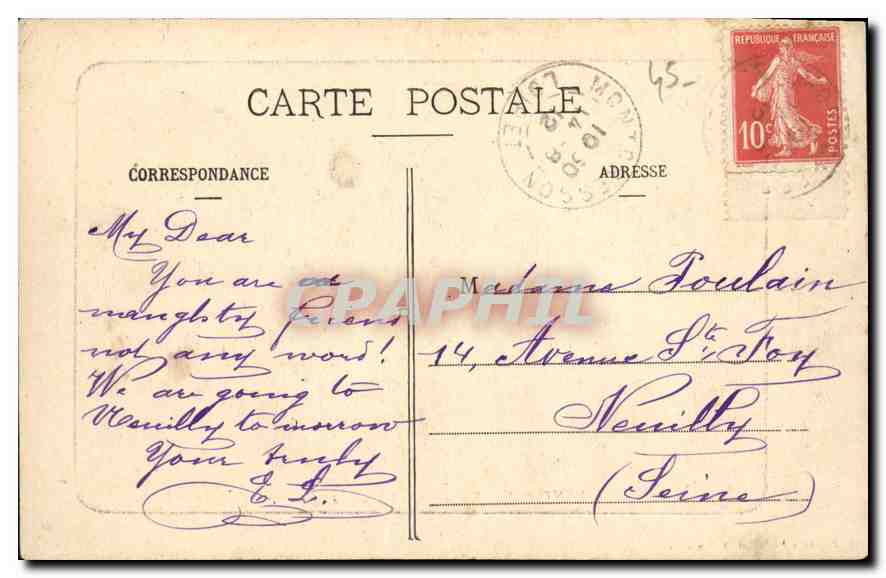 CARTE POSTALE
CORRESPONDANCE
ADRESSE
45-
REPUBLIQUE FRANÇAISE
10c
POSTES
MONTRESSON
14 10
30 8
12
My Dear
You are a
naughty friend
not any word!
We are going to
Neuilly to morrow
Your truly
E. L.
Madame Poulain
14, Avenue Ste Foy
Neuilly
(Seine)
CPAPHIL